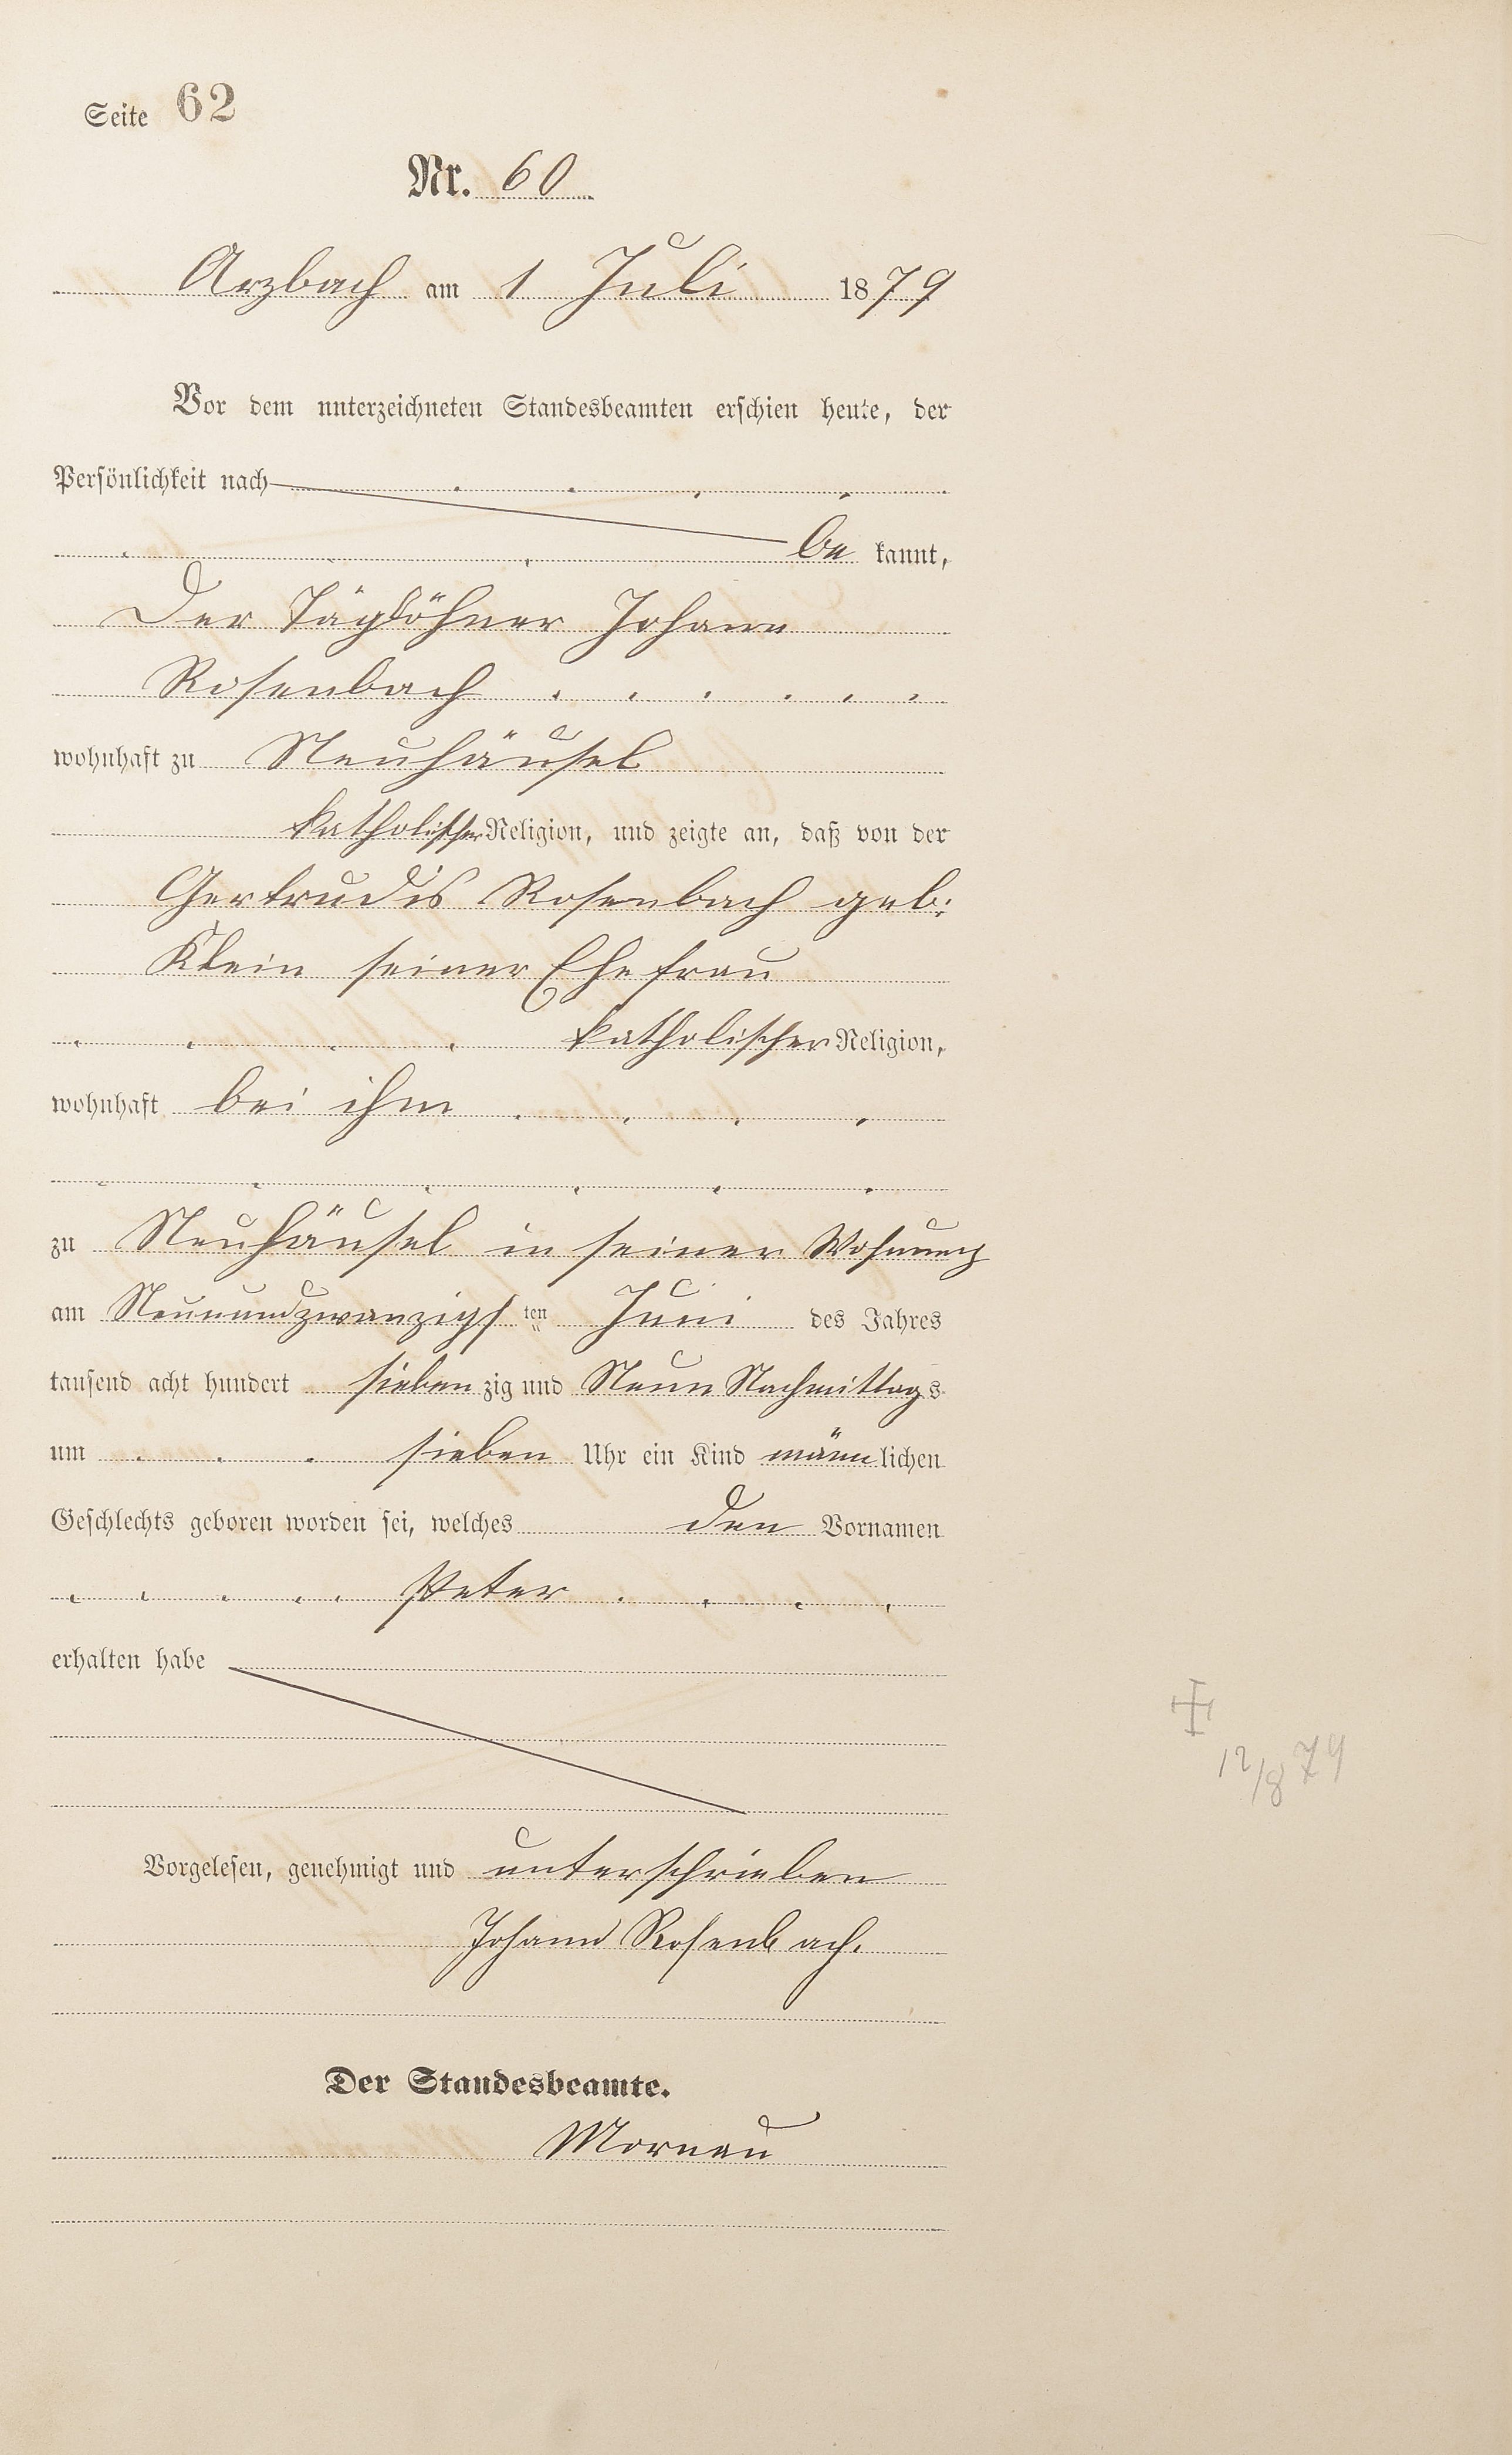 Seite 62
Nr. 60
Arzbach am 1 Juli 1879
Vor dem unterzeichneten Standesbeamten erschien heute, der
Persönlichkeit nach
be kannt,
Der Täglöhner Johann
Rosenbach
wohnhaft zu Neuhäusel
katholischer Religion, und zeigte an, daß von der
Gertrudis Rosenbach geb:
Klein seiner Ehefrau
katholischer Religion,
wohnhaft bei ihm
zu Neuhäusel in seiner Wohnung
am Neunundzwanzigs ten Juni des Jahres
tausend acht hundert sieben zig und Neun Nachmittags
um sieben Uhr ein Kind männ lichen
Geschlechts geboren worden sei, welches den Vornamen
Peter
erhalten habe
12/8 79
Vorgelesen, genehmigt und unterschrieben
Johann Rosenbach.
Der Standesbeamte.
Mornau